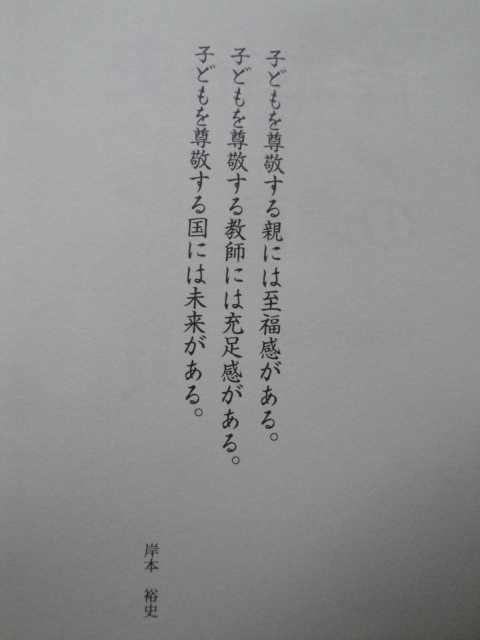 子どもを尊敬する親には至福感がある。
子どもを尊敬する教師には充足感がある。
子どもを尊敬する国には未来がある。
岸本 裕史